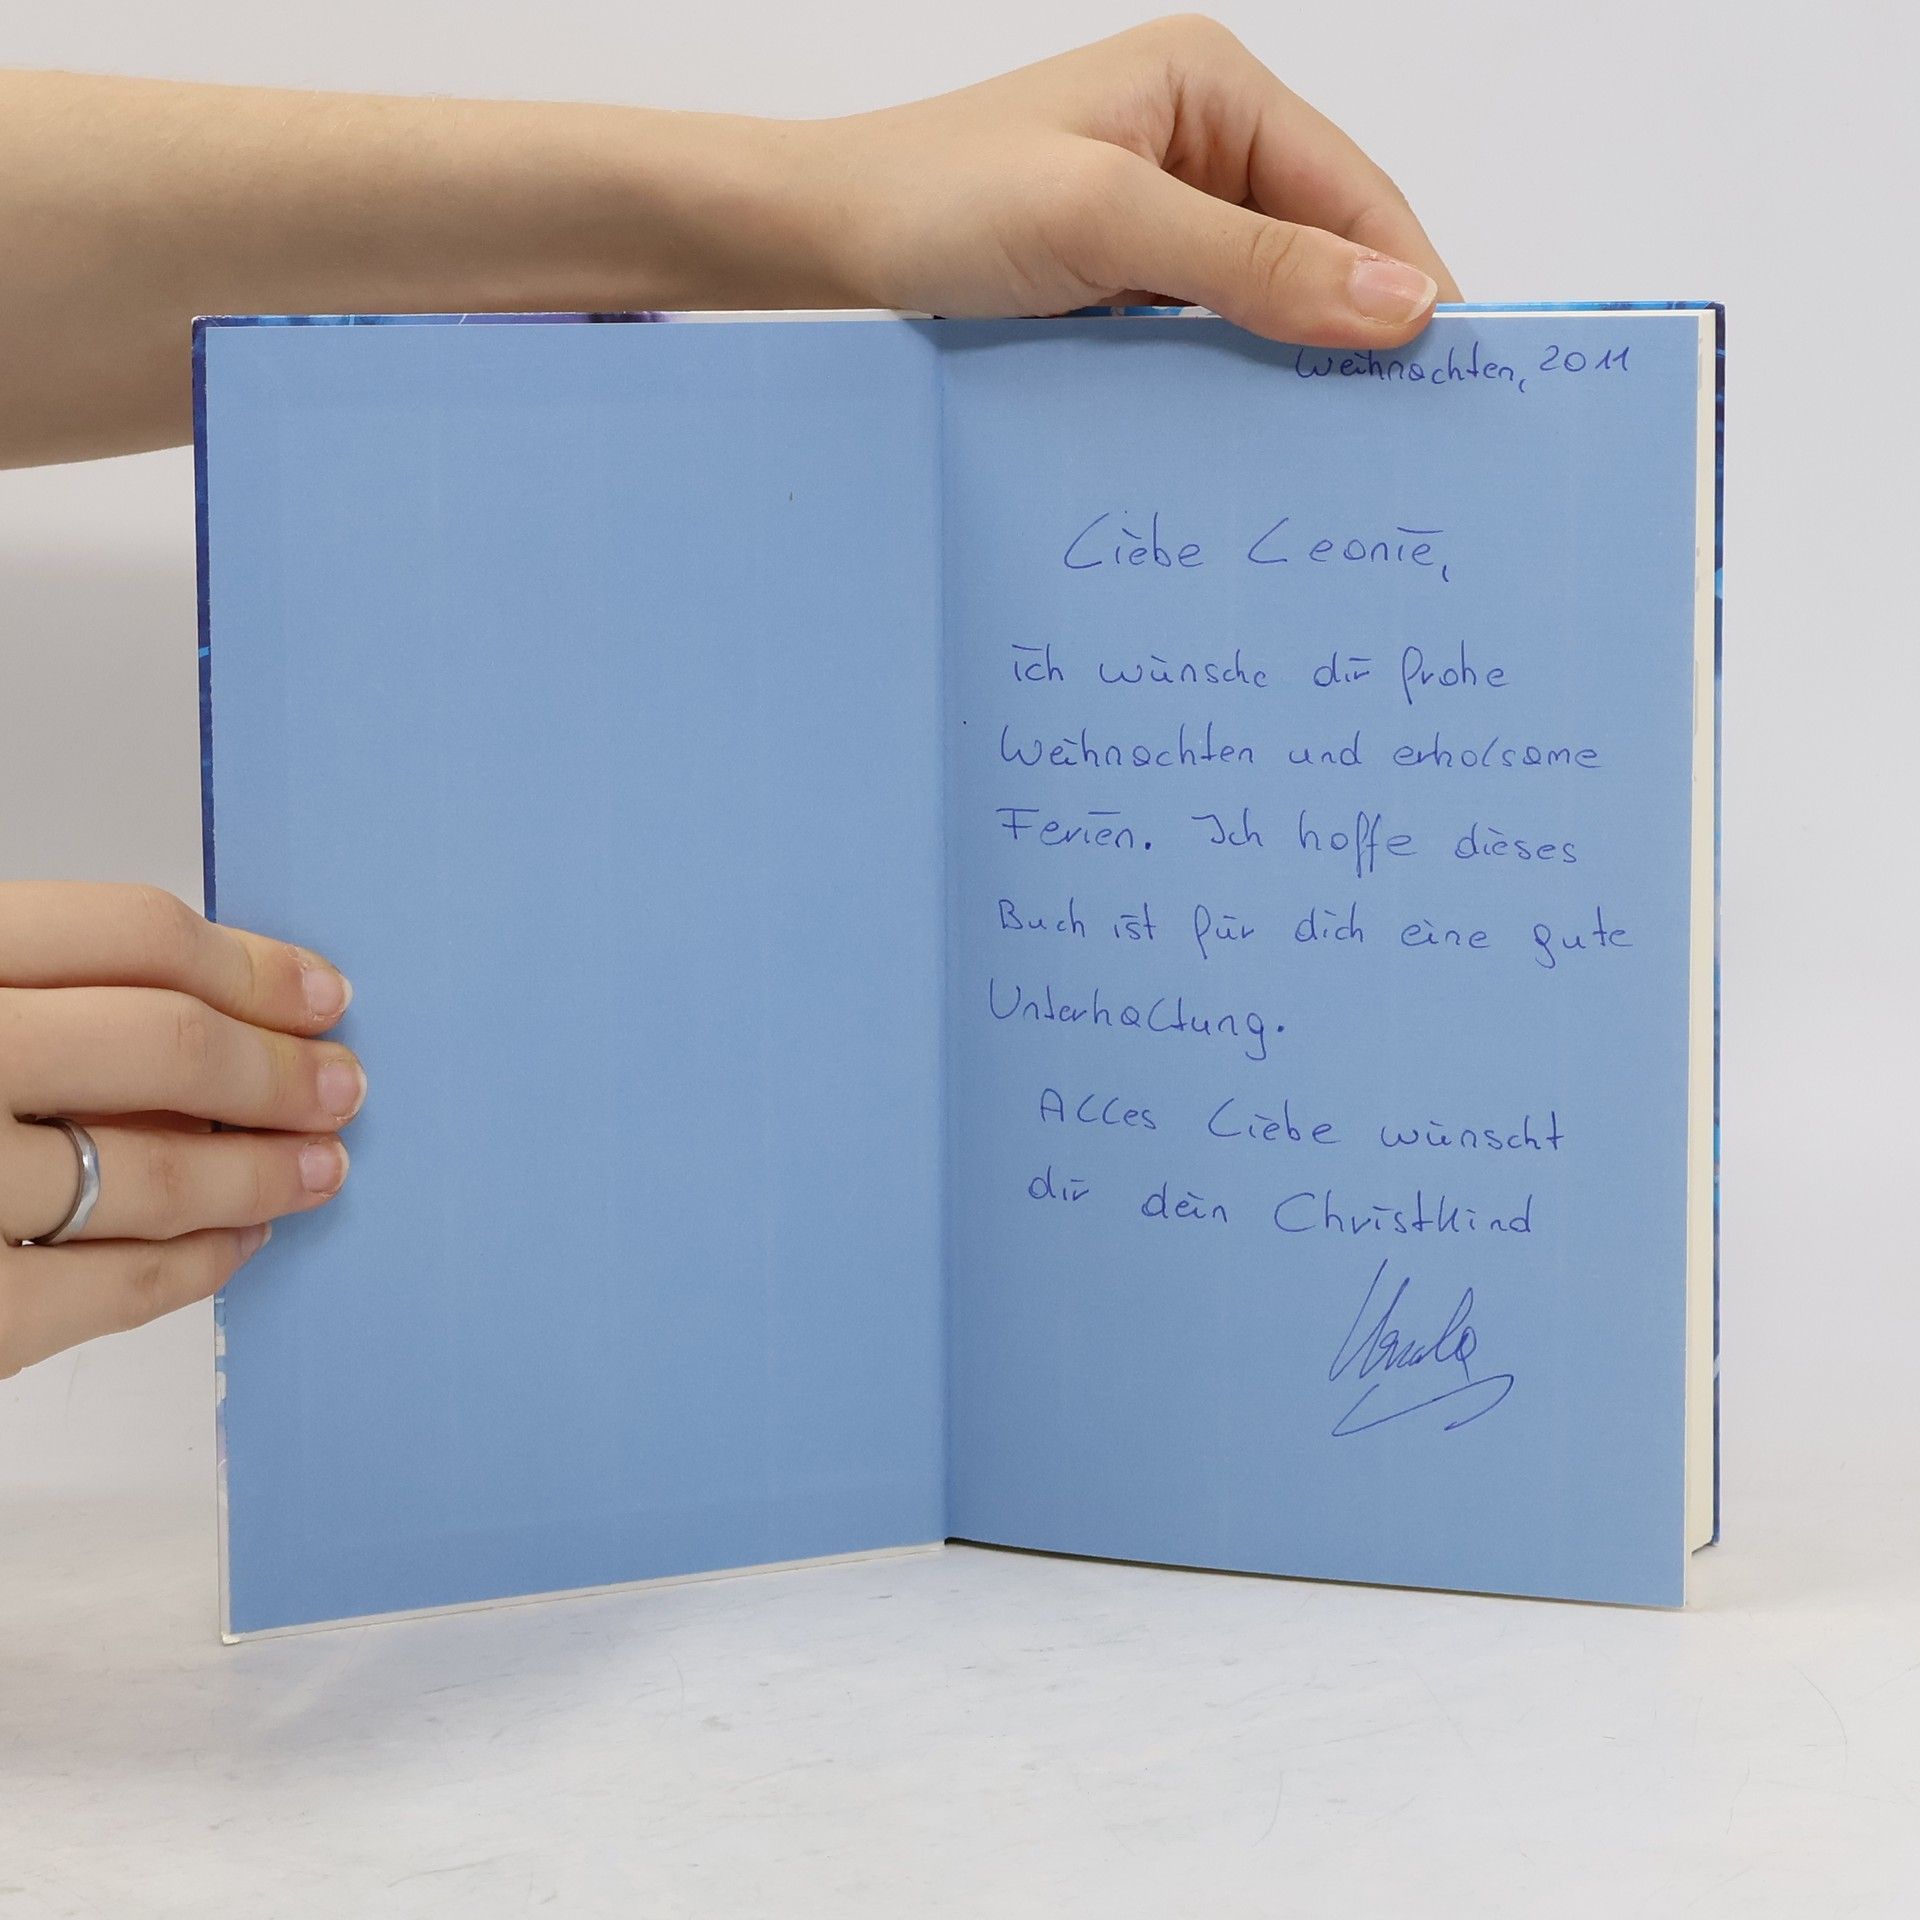 Weihnachten, 2011
Liebe Leonie,
ich wünsche dir frohe
Weihnachten und erholsame
Ferien. Ich hoffe dieses
Buch ist für dich eine gute
Unterhaltung.
Alles Liebe wünscht
dir dein Christkind
Ursula